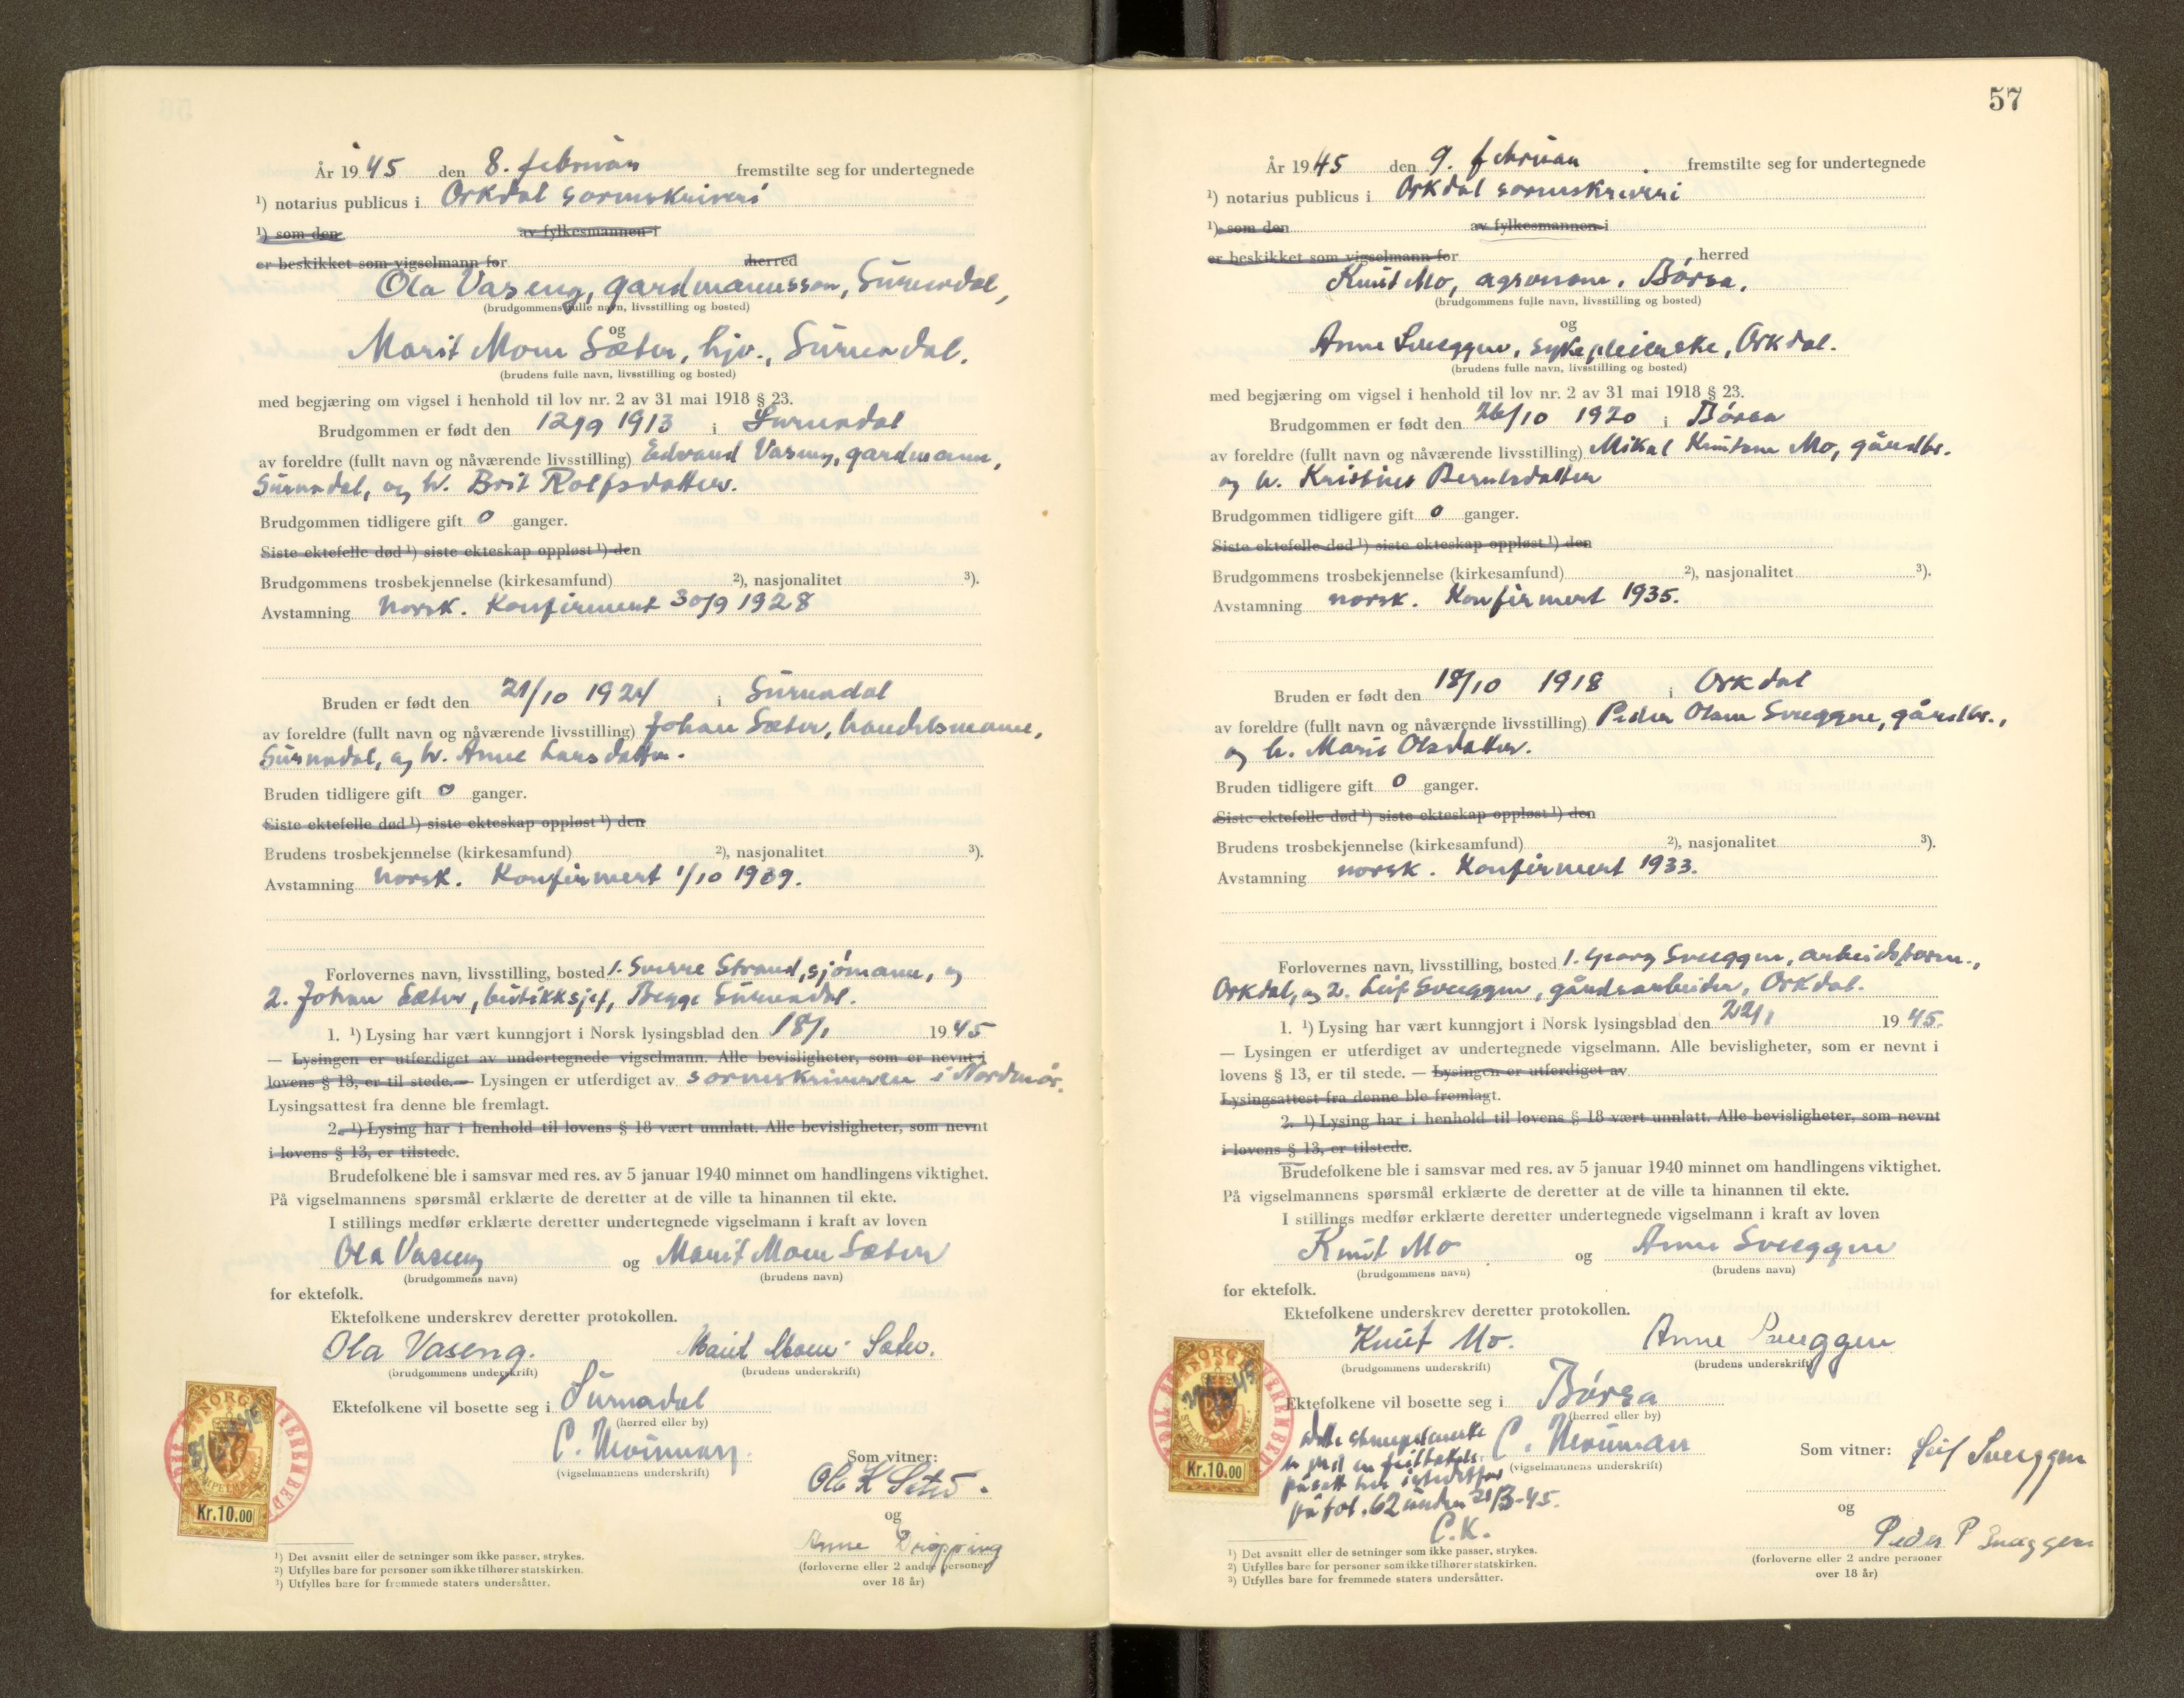 År 1945 den 8. februar fremstilte seg for undertegnede
¹) notarius publicus i Orkdal sorenskriveri
¹) som den av fylkesmannen i
er beskikket som vigselmann for herred
Ola Vaseng, gardmannsson, Surendal,
(brudgommens fulle navn, livsstilling og bosted)
og
Marit Moen Sæter, hjv., Surendal.
(brudens fulle navn, livsstilling og bosted)
med begjæring om vigsel i henhold til lov nr. 2 av 31 mai 1918 § 23.
Brudgommen er født den 12/9 1913 i Surendal
av foreldre (fullt navn og nåværende livsstilling) Edvard Vaseng, gardmann,
Surnadal, og h. Brit Rolfsdatter.
Brudgommen tidligere gift 0 ganger.
Siste ektefelle død ¹) siste ekteskap oppløst ¹) den
Brudgommens trosbekjennelse (kirkesamfund) ²), nasjonalitet ³).
Avstamning norsk. Konfirmert 30/9 1928
Bruden er født den 21/10 1924 i Surendal
av foreldre (fullt navn og nåværende livsstilling) Johan Sæter, handelsmann,
Surnadal, og h. Anne Larsdatter.
Bruden tidligere gift 0 ganger.
Siste ektefelle død ¹) siste ekteskap oppløst ¹) den
Brudens trosbekjennelse (kirkesamfund) ²), nasjonalitet ³).
Avstamning norsk. Konfirmert 1/10 1939.
Forlovernes navn, livsstilling, bosted 1. Sverre Strand, sjömann, og
2. Johan Sæter, butikksjef, Begge Surendal.
1. ¹) Lysing har vært kunngjort i Norsk lysingsblad den 18/1 1945
— Lysingen er utferdiget av undertegnede vigselmann. Alle bevisligheter, som er nevnt i
lovens § 13, er til stede. — Lysingen er utferdiget av sorenskriveren i Nordmör.
Lysingsattest fra denne ble fremlagt.
2. ¹) Lysing har i henhold til lovens § 18 vært unnlatt. Alle bevisligheter, som nevnt
i lovens § 13, er tilstede.
Brudefolkene ble i samsvar med res. av 5 januar 1940 minnet om handlingens viktighet.
På vigselmannens spørsmål erklærte de deretter at de ville ta hinannen til ekte.
I stillings medfør erklærte deretter undertegnede vigselmann i kraft av loven
Ola Vaseng og Marit Moen Sæter
(brudgommens navn) (brudens navn)
for ektefolk.
Ektefolkene underskrev deretter protokollen.
Ola Vaseng. Marit Moen Sæter.
(brudgommens underskrift) (brudens underskrift)
Ektefolkene vil bosette seg i Surnadal
(herred eller by)
C.
(vigselmannens underskrift)
Som vitner:
Ola K Seter.
og
Anne
(forloverne eller 2 andre personer
over 18 år)
NORGE
STEMPELMERKE
Kr. 10.00
¹) Det avsnitt eller de setninger som ikke passer, strykes.
²) Utfylles bare for personer som ikke tilhører statskirken.
³) Utfylles bare for fremmede staters undersåtter.
57
År 1945 den 9. februar fremstilte seg for undertegnede
¹) notarius publicus i Orkdal sorenskriveri
¹) som den av fylkesmannen i
er beskikket som vigselmann for herred
Knut Mo, agronom, Börsa,
(brudgommens fulle navn, livsstilling og bosted)
og
Anne Sveggen, sykepleierske, Orkdal.
(brudens fulle navn, livsstilling og bosted)
med begjæring om vigsel i henhold til lov nr. 2 av 31 mai 1918 § 23.
Brudgommen er født den 26/10 1920 i Börsa
av foreldre (fullt navn og nåværende livsstilling) Mikal Knutsen Mo, gårdbr.
og h. Kristine Berntsdatter
Brudgommen tidligere gift 0 ganger.
Siste ektefelle død ¹) siste ekteskap oppløst ¹) den
Brudgommens trosbekjennelse (kirkesamfund) ²), nasjonalitet ³).
Avstamning norsk. Konfirmert 1935.
Bruden er født den 18/10 1918 i Orkdal
av foreldre (fullt navn og nåværende livsstilling) Peder Olsen Sveggen, gårdbr.,
og h. Marie Olsdatter.
Bruden tidligere gift 0 ganger.
Siste ektefelle død ¹) siste ekteskap oppløst ¹) den
Brudens trosbekjennelse (kirkesamfund) ²), nasjonalitet ³).
Avstamning norsk. Konfirmert 1933.
Forlovernes navn, livsstilling, bosted 1. Georg Sveggen, arbeidsform.,
Orkdal, og 2. Leif Sveggen, gårdsarbeider, Orkdal.
1. ¹) Lysing har vært kunngjort i Norsk lysingsblad den 22/1 1945.
— Lysingen er utferdiget av undertegnede vigselmann. Alle bevisligheter, som er nevnt i
lovens § 13, er til stede. — Lysingen er utferdiget av
Lysingsattest fra denne ble fremlagt.
2. ¹) Lysing har i henhold til lovens § 18 vært unnlatt. Alle bevisligheter, som nevnt
i lovens § 13, er tilstede.
Brudefolkene ble i samsvar med res. av 5 januar 1940 minnet om handlingens viktighet.
På vigselmannens spørsmål erklærte de deretter at de ville ta hinannen til ekte.
I stillings medfør erklærte deretter undertegnede vigselmann i kraft av loven
Knut Mo og Anne Sveggen
(brudgommens navn) (brudens navn)
for ektefolk.
Ektefolkene underskrev deretter protokollen.
Knut Mo. Anne Sveggen
(brudgommens underskrift) (brudens underskrift)
Ektefolkene vil bosette seg i Börsa
(herred eller by)
C.
(vigselmannens underskrift)
Dette stempelmerke
er ved en feiltakelse
påsatt her istedetfor
på fol. 62 under 21/3-45.
C.K.
Som vitner: Leif Sveggen
og
Peder P Sveggen
(forloverne eller 2 andre personer
over 18 år)
NORGE
STEMPELMERKE
Kr. 10.00
¹) Det avsnitt eller de setninger som ikke passer, strykes.
²) Utfylles bare for personer som ikke tilhører statskirken.
³) Utfylles bare for fremmede staters undersåtter.